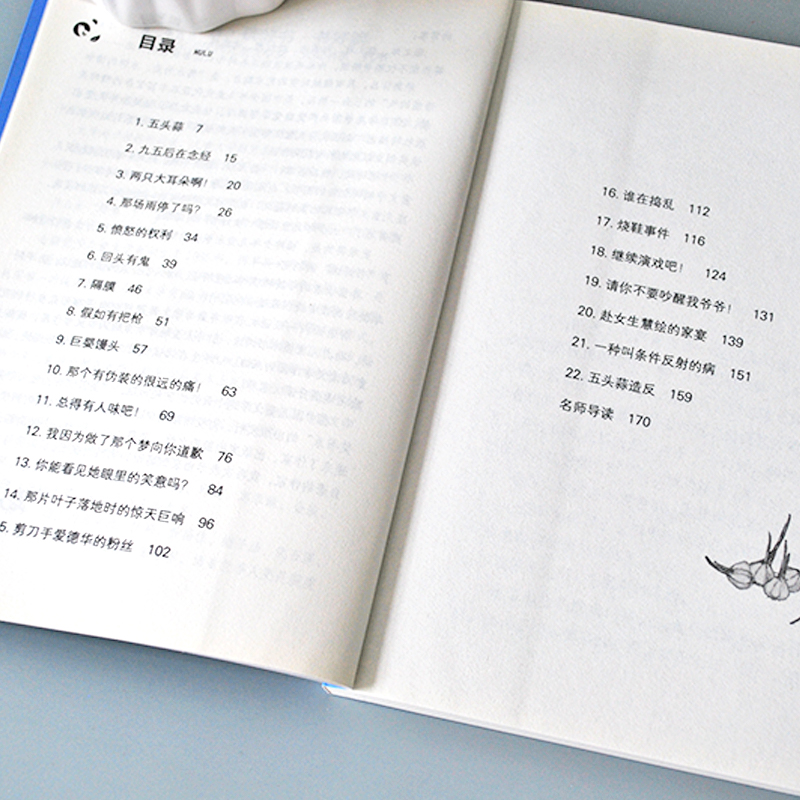 目录 MULU
1. 五头蒜 7
2. 九五后在念经 15
3. 两只大耳朵啊！ 20
4. 那场雨停了吗？ 26
5. 愤怒的权利 34
6. 回头有鬼 39
7. 隔膜 46
8. 假如有把枪 51
9. 巨婴馒头 57
10. 那个有伪装的很远的痛！ 63
11. 总得有人味吧！ 69
12. 我因为做了那个梦向你道歉 76
13. 你能看见她眼里的笑意吗？ 84
14. 那片叶子落地时的惊天巨响 96
5. 剪刀手爱德华的粉丝 102
16. 谁在捣乱 112
17. 烧鞋事件 116
18. 继续演戏吧！ 124
19. 请你不要吵醒我爷爷！ 131
20. 赴女生慧绘的家宴 139
21. 一种叫条件反射的病 151
22. 五头蒜造反 159
名师导读 170